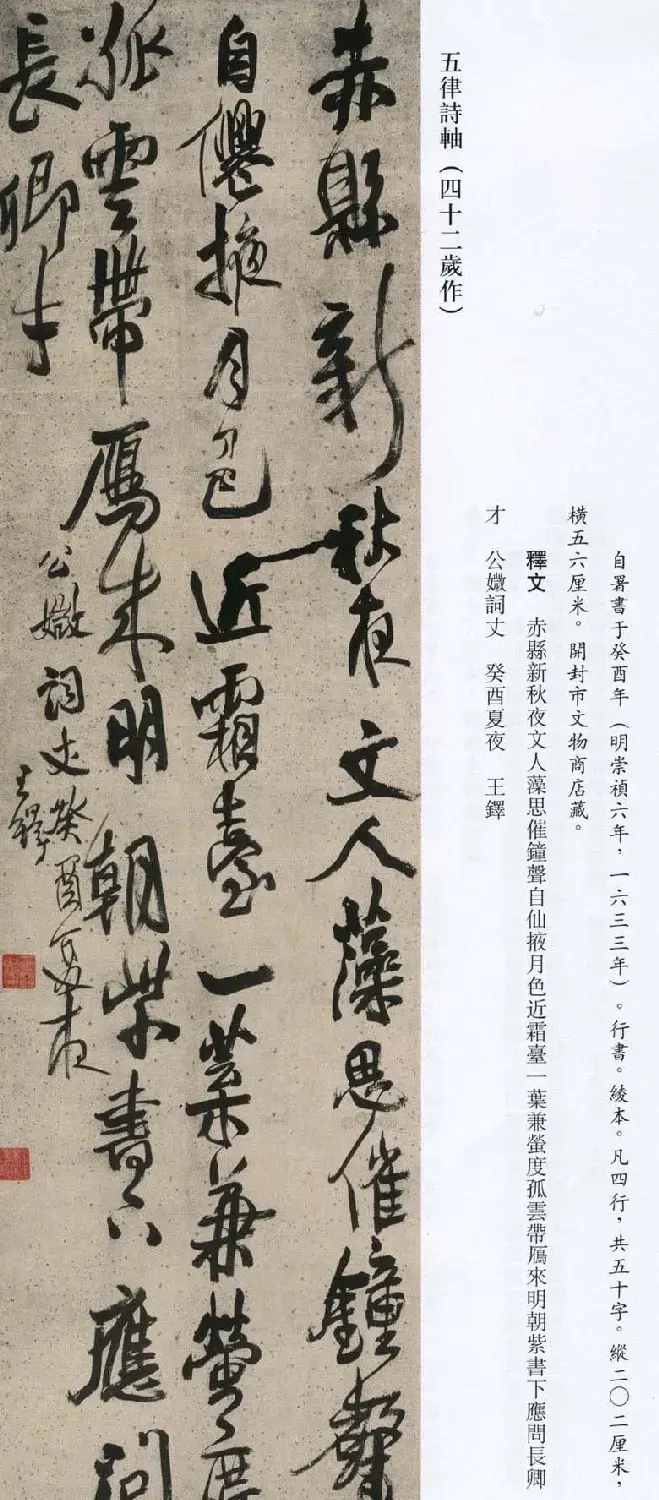 五律詩軸（四十二歲作）
自署書于癸酉年（明崇禎六年，一六三三年）。行書。綾本。凡四行，共五十字。縱二〇二厘米，
橫五六厘米。開封市文物商店藏。
釋文　赤縣新秋夜文人藻思催鐘聲自仙掖月色近霜臺一葉兼螢度孤雲帶鴈來明朝紫書下應問長卿
才　公嬓詞丈　癸酉夏夜　王鐸
赤縣新秋夜文人藻思催鐘聲
自僊掖月色近霜臺一葉兼螢度
孤雲帶鴈來明朝紫書下應問
長卿才
公嬓詞丈癸酉夏夜
王鐸